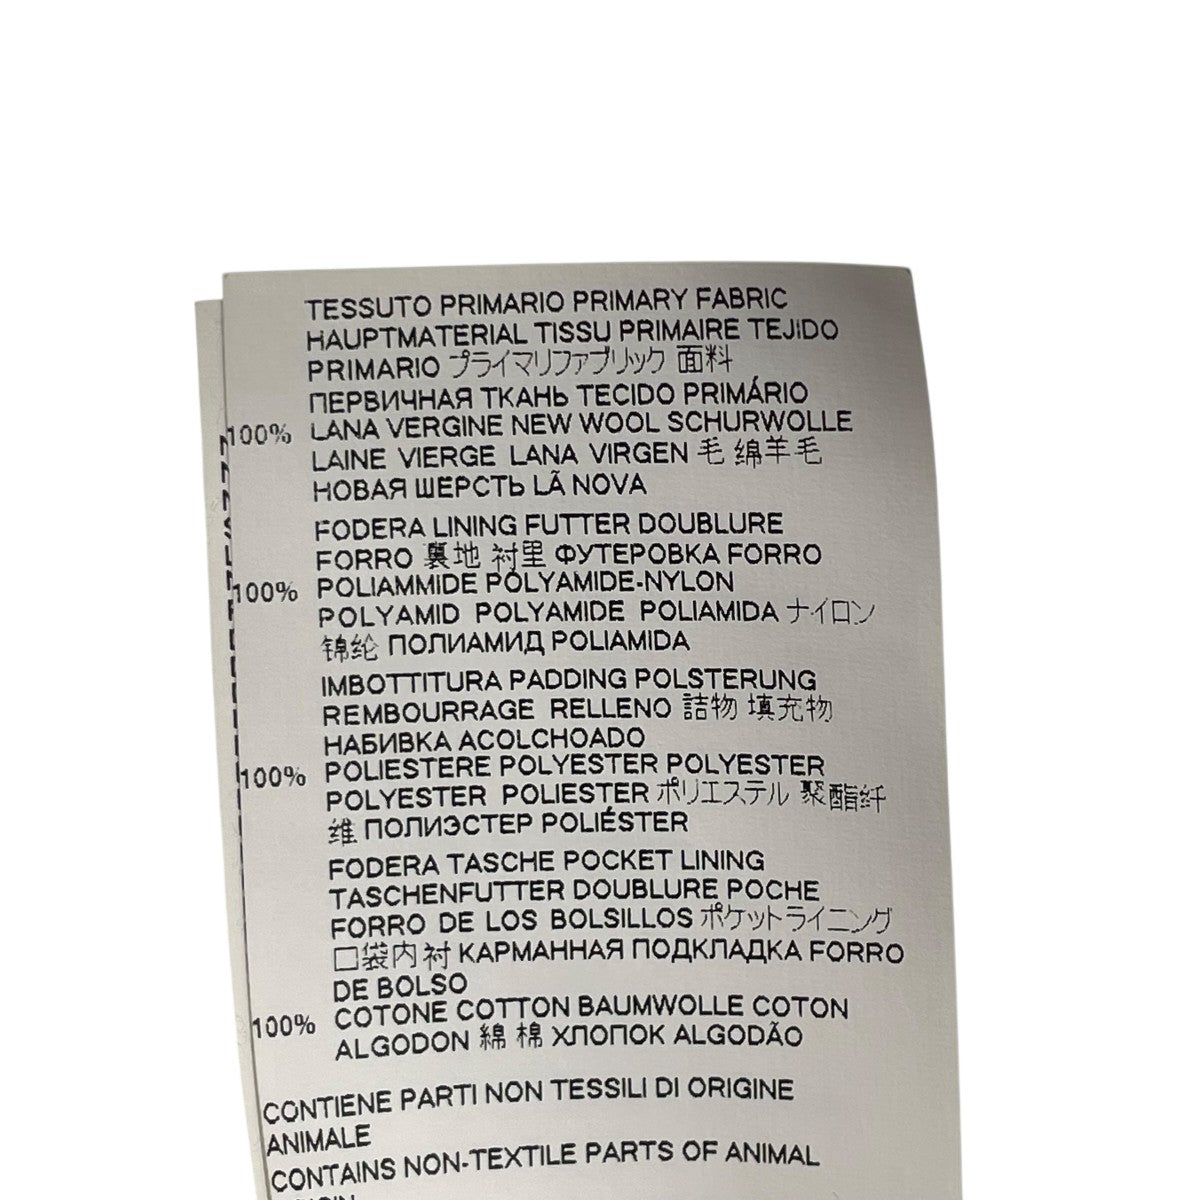 TESSUTO PRIMARIO PRIMARY FABRIC
HAUPTMATERIAL TISSU PRIMAIRE TEJIDO
PRIMARIO プライマリファブリック 面料
ПЕРВИЧНАЯ ТКАНЬ TECIDO PRIMÁRIO
100% LANA VERGINE NEW WOOL SCHURWOLLE
LAINE VIERGE LANA VIRGEN 毛 绵羊毛
НОВАЯ ШЕРСТЬ LÃ NOVA
FODERA LINING FUTTER DOUBLURE
FORRO 裏地 衬里 ФУТЕРОВКА FORRO
100% POLIAMMIDE POLYAMIDE-NYLON
POLYAMID POLYAMIDE POLIAMIDA ナイロン
锦纶 ПОЛИАМИД POLIAMIDA
IMBOTTITURA PADDING POLSTERUNG
REMBOURRAGE RELLENO 詰物 填充物
НАБИВКА ACOLCHOADO
100% POLIESTERE POLYESTER POLYESTER
POLYESTER POLIESTER ポリエステル 聚酯纤
维 ПОЛИЭСТЕР POLIÉSTER
FODERA TASCHE POCKET LINING
TASCHENFUTTER DOUBLURE POCHE
FORRO DE LOS BOLSILLOS ポケットライニング
口袋内衬 КАРМАННАЯ ПОДКЛАДКА FORRO
DE BOLSO
100% COTONE COTTON BAUMWOLLE COTON
ALGODON 綿 棉 ХЛОПОК ALGODÃO
CONTIENE PARTI NON TESSILI DI ORIGINE
ANIMALE
CONTAINS NON-TEXTILE PARTS OF ANIMAL